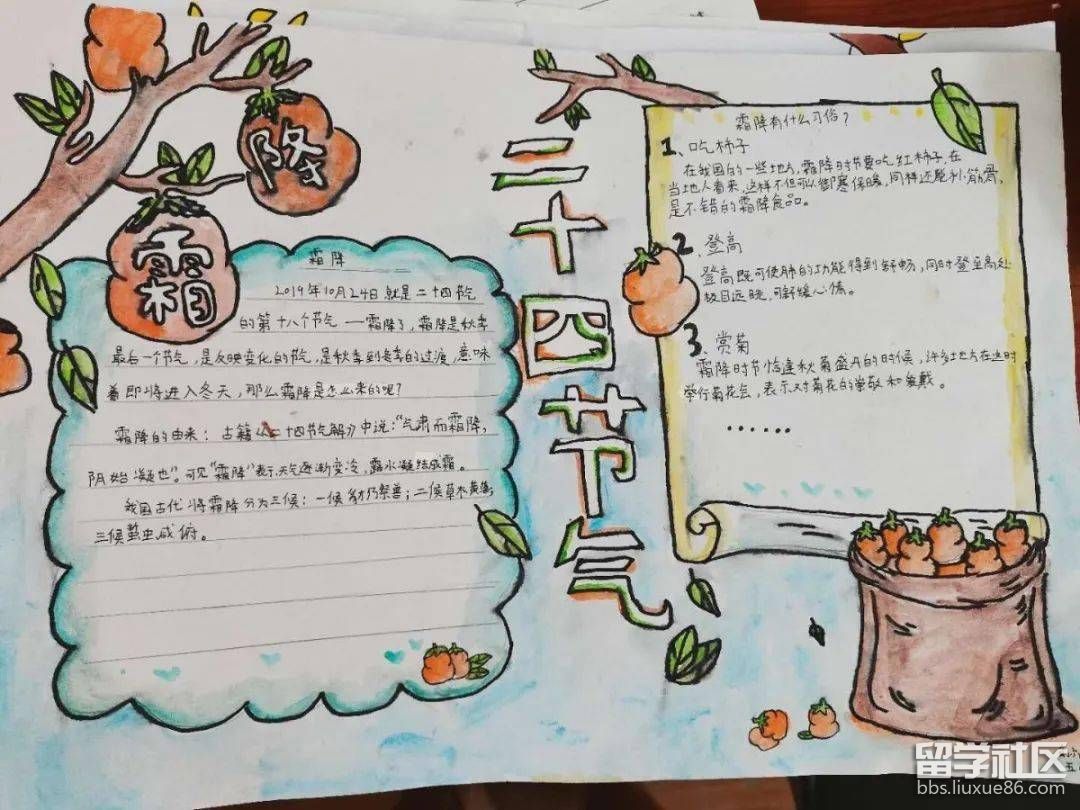 霜降
二十四节气
霜降
2019年10月24日就是二十四节气
的第十八个节气——霜降了，霜降是秋季
最后一个节气，是反映变化的节气，是秋季到冬季的过渡，意味
着即将进入冬天，那么霜降是怎么来的呢？
霜降的由来：古籍《二十四节气解》中说："气肃而霜降，
阴始凝也"。可见"霜降"表示天气逐渐变冷，露水凝结成霜。
我国古代将霜降分为三候：一候豺乃祭兽；二候草木黄落；
三候蛰虫咸俯。
霜降有什么习俗？
1、吃柿子
在我国的一些地方，霜降时节要吃红柿子，在
当地人看来，这样不但可以御寒保暖，同样还能补筋骨，
是不错的霜降食品。
2、登高
登高既可使肺的功能得到舒畅，同时登至高处
极目远眺，可舒缓心情。
3、赏菊
霜降时节恰逢秋菊盛丹的时候，许多地方在这时
举行菊花会，表示对菊花的崇敬和爱戴。
……
留学社区
bbs.liuxue86.com